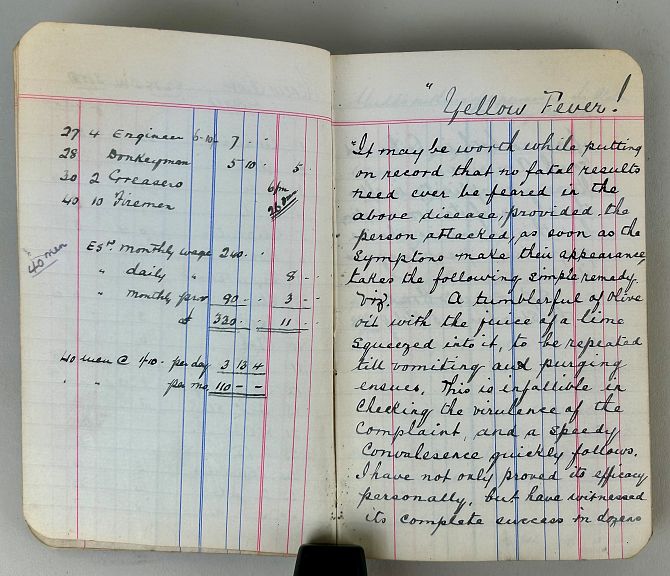 27 4 Engineer 6-10- 7 - -
28 Donkeyman 5-10 - 5 -
30 2 Greasers 6
40 10 Firemen
40 men
Estd monthly wage 240 - -
" daily " 8 - -
" monthly prov 90 - - 3 - -
£ 330 - - 11 - -
40 men @ 1/10 - per day 3 13 4
" " per mo. 110 - -
"Yellow Fever!
"It may be worth while putting
on record that no fatal results
need ever be feared in the
above disease, provided the
person attacked, as soon as the
Symptons make their appearance,
takes the following simple remedy
Viz. A tumblerful of Olive
oil with the juice of a lime
squeezed into it, to be repeated
till vomiting and purging
ensues. This is infallible in
checking the virulence of the
complaint, and a speedy
Convalesence quickly follows.
I have not only proved its efficacy
personally, but have witnessed
its complete success in dozens